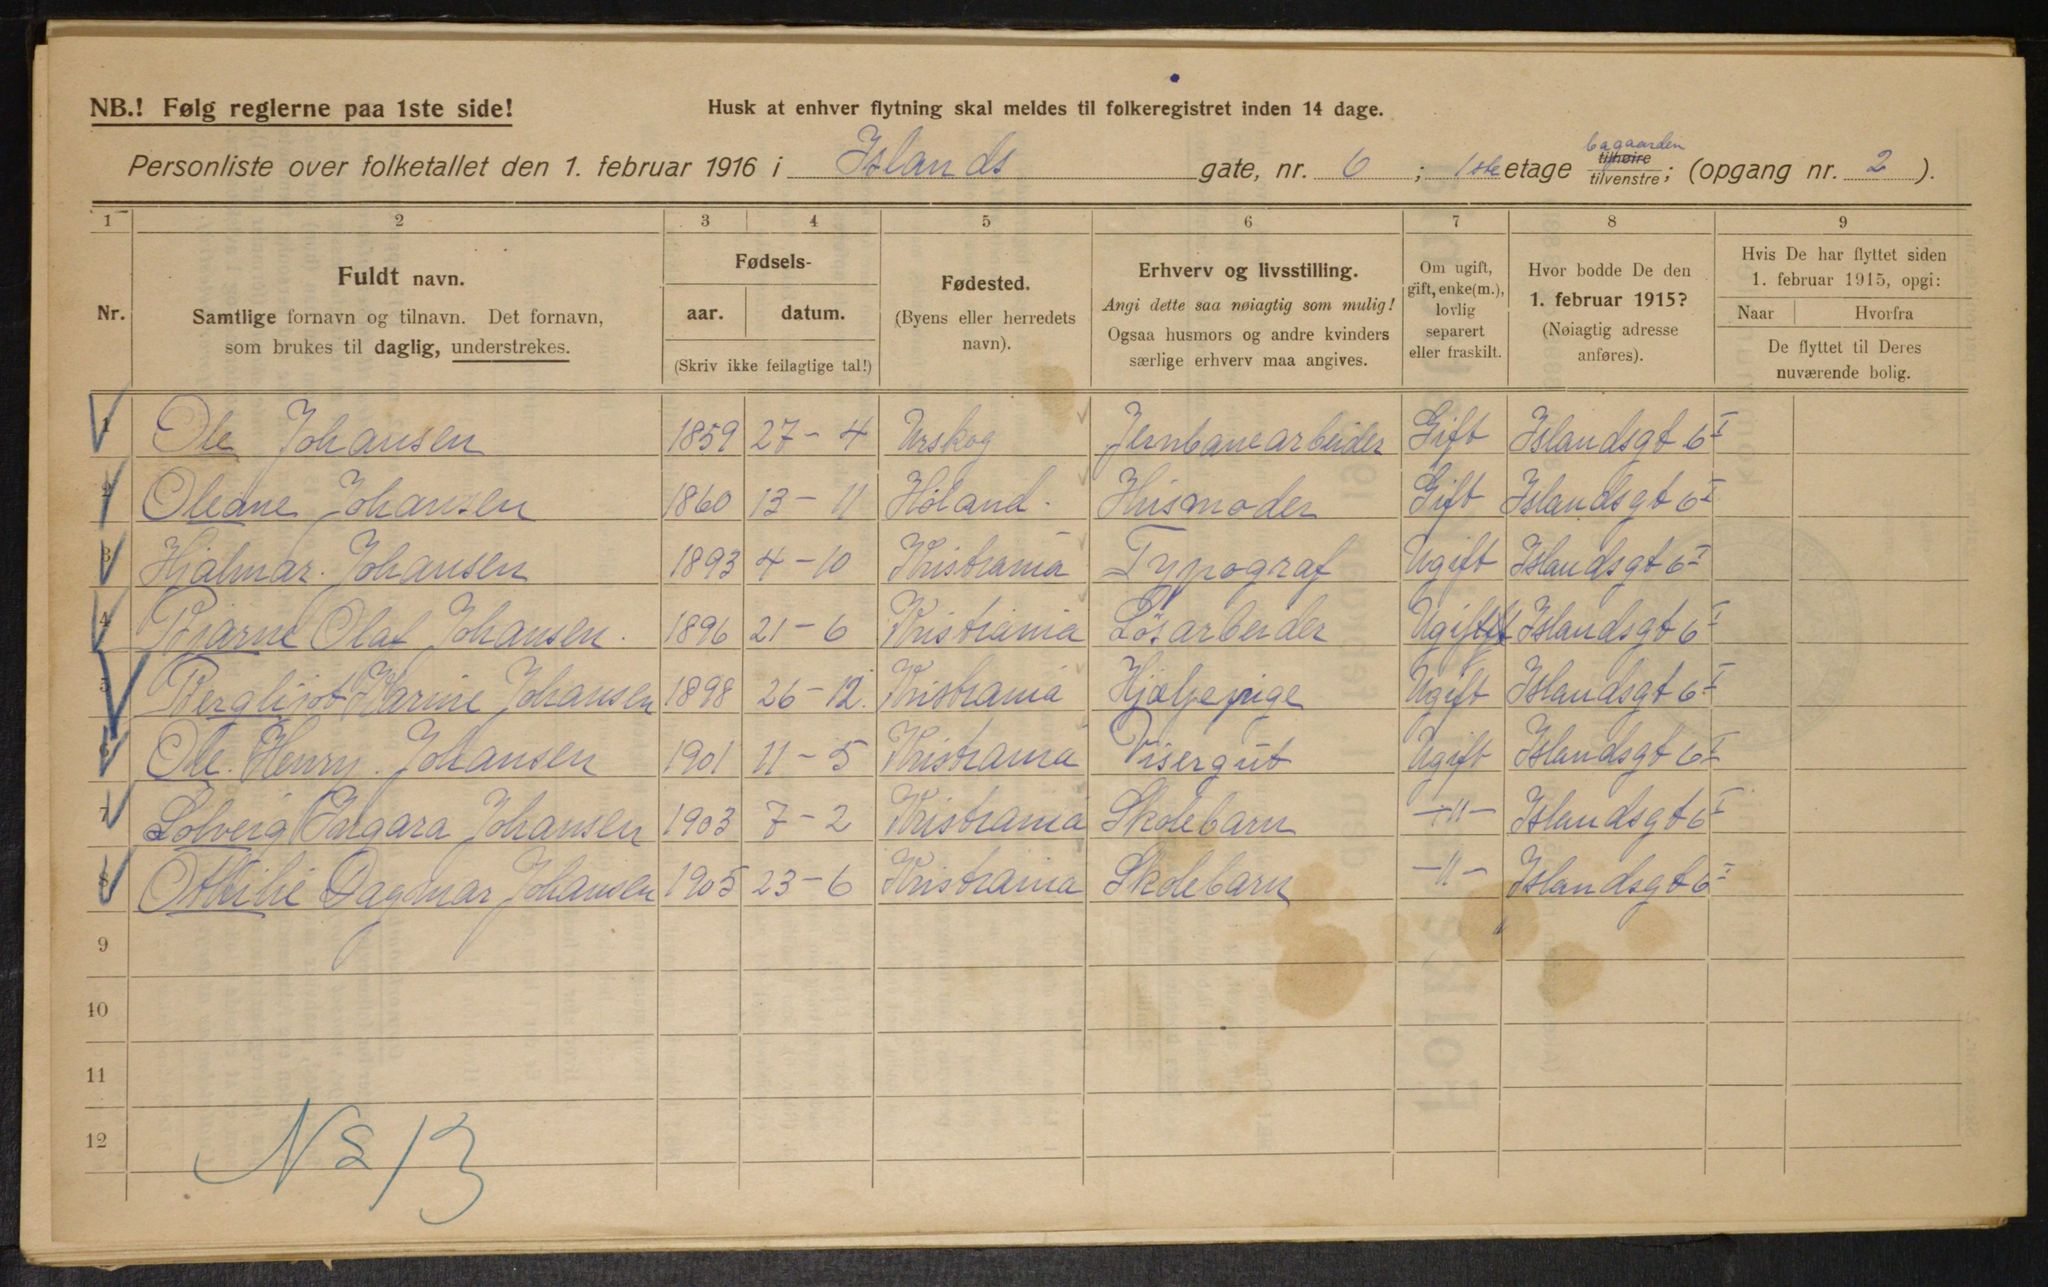 NB.! Følg reglerne paa 1ste side!
Husk at enhver flytning skal meldes til folkeregistret inden 14 dage.
bagaarden
Personliste over folketallet den 1. februar 1916 i Islands gate, nr. 6 ; 1ste etage tilhøire tilvenstre; (opgang nr. 2 ).
1 2 3 4 5 6 7 8 9
Nr.
Fuldt navn.
Samtlige fornavn og tilnavn. Det fornavn,
som brukes til daglig, understrekes.
Fødsels-
aar. datum.
(Skriv ikke feilagtige tal!)
Fødested.
(Byens eller herredets
navn).
Erhverv og livsstilling.
Angi dette saa nøiagtig som mulig!
Ogsaa husmors og andre kvinders
særlige erhverv maa angives.
Om ugift,
gift, enke(m.),
lovlig
separert
eller fraskilt.
Hvor bodde De den
1. februar 1915?
(Nøiagtig adresse
anføres).
Hvis De har flyttet siden
1. februar 1915, opgi:
Naar Hvorfra
De flyttet til Deres
nuværende bolig.
1 Ole Johansen 1859 27-4 Urskog Jernbanearbeider Gift Islandsgt 6 I
2 Oleane Johansen 1860 13-11 Høland. Husmoder Gift Islandsgt 6 I
3 Hjalmar. Johansen 1893 4-10 Kristiania Typograf Ugift Islandsgt 6 I
4 Bjarne Olaf Johansen. 1896 21-6 Kristiania Løsarbeider Ugift Islandsgt 6 I
5 Bergliot Karine Johansen 1898 26-12. Kristiania Hjælpepige Ugift Islandsgt 6 I
6 Ole. Henry. Johansen 1901 11-5 Kristiania Visergut Ugift Islandsgt 6 I
7 Solveig Johansen 1903 7-2 Kristiania Skolebarn -"- Islandsgt 6 I
8 Othilie Dagmar Johansen 1905 23-6 Kristiania Skolebarn -"- Islandsgt 6 I
9
10
11
12
No 13